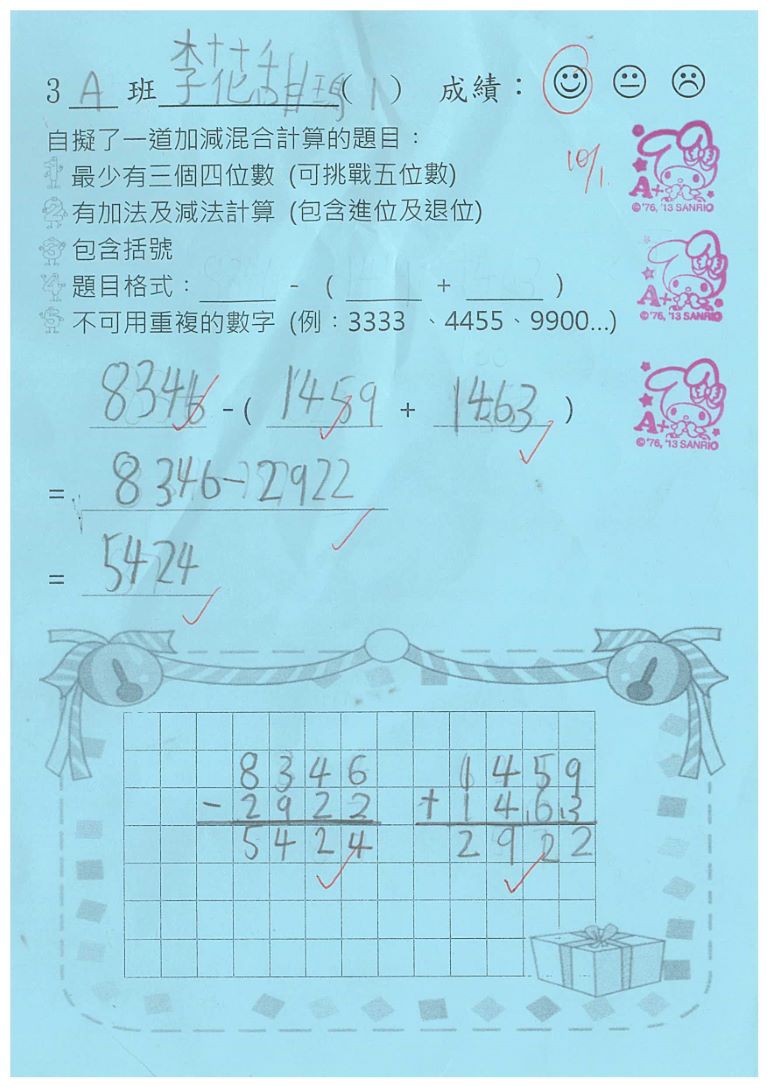 3 A 班 李花甜瑪 ( 1 ) 成績：
自擬了一道加減混合計算的題目：
10/1
1 最少有三個四位數 (可挑戰五位數)
A+
©'76, '13 SANRIO
2 有加法及減法計算 (包含進位及退位)
3 包含括號
4 題目格式：______ - ( ______ + ______ )
A+
©'76, '13 SANRIO
5 不可用重複的數字 (例：3333 、4455、9900...)
8346 - ( 1459 + 1463 )
A+
©'76, '13 SANRIO
= 8346-2922
= 5424
8346 1459
- 2922 + 1463
5424 2922